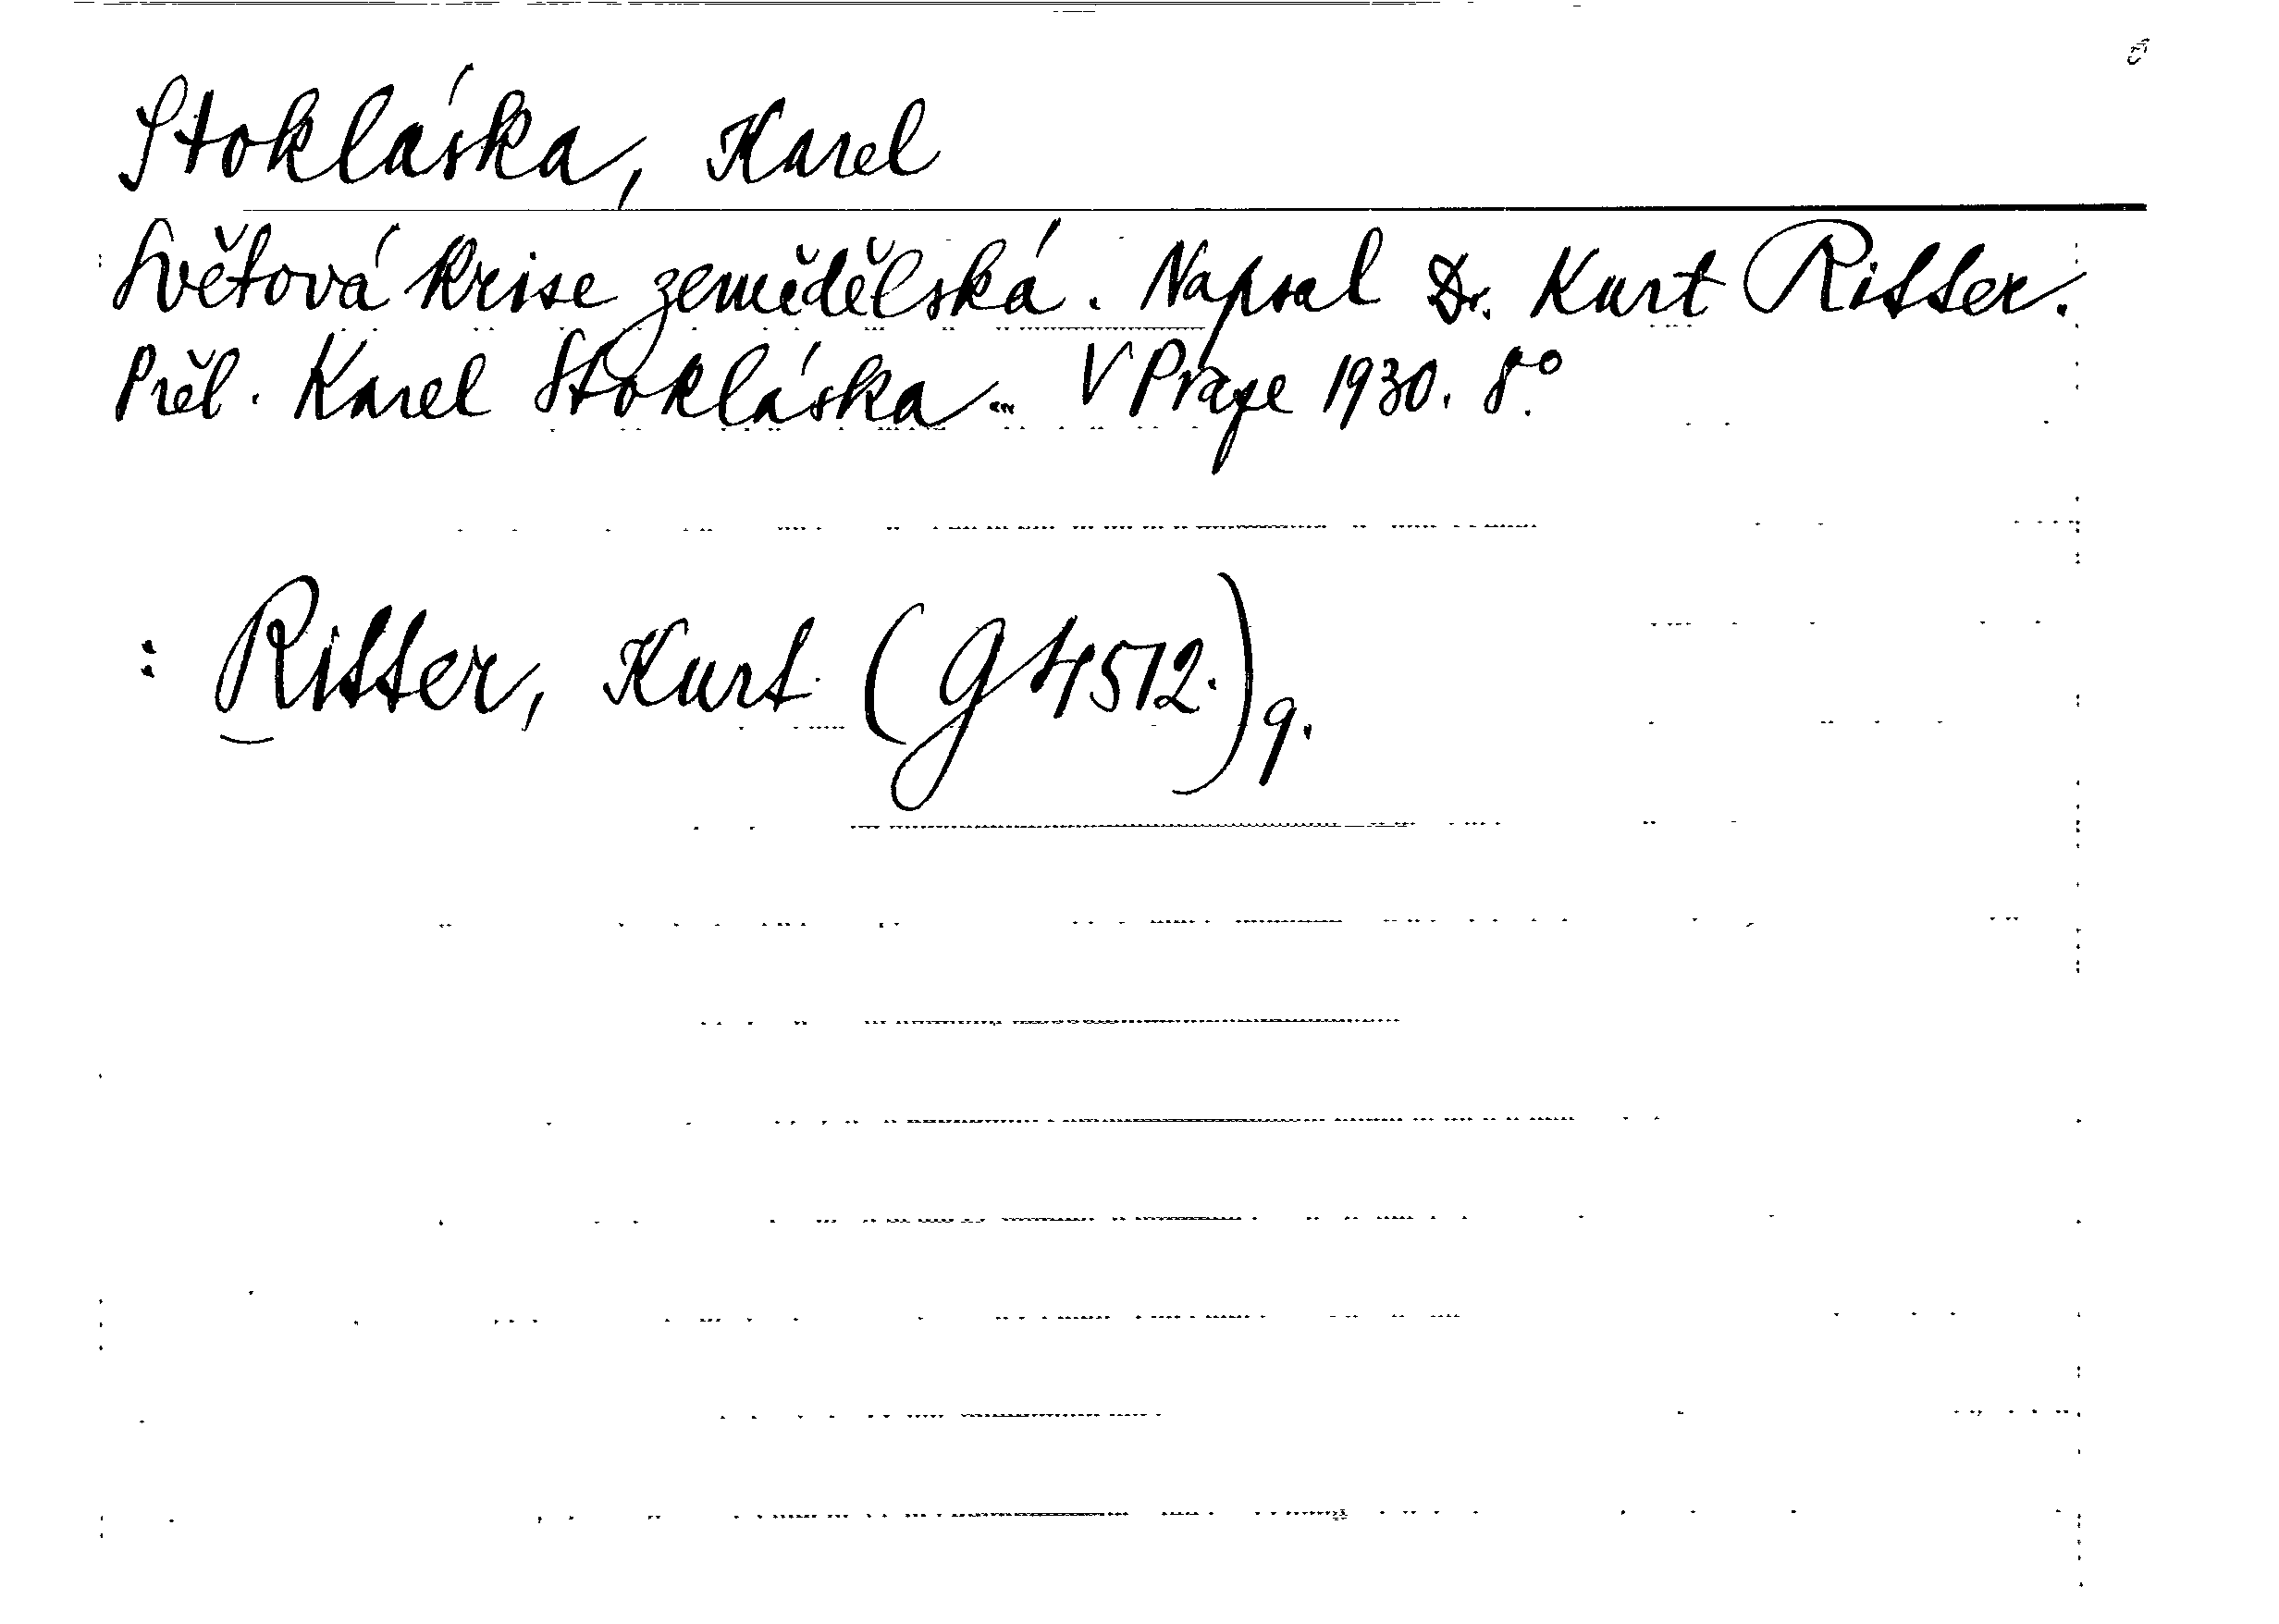 Stokláska, Karel
Světová krise zemědělská. Napsal Dr. Kurt Ritter.
Přel. Karel Stokláska.. V Praze 1930. 8°.
: Ritter, Kurt (G 4512.) 9.